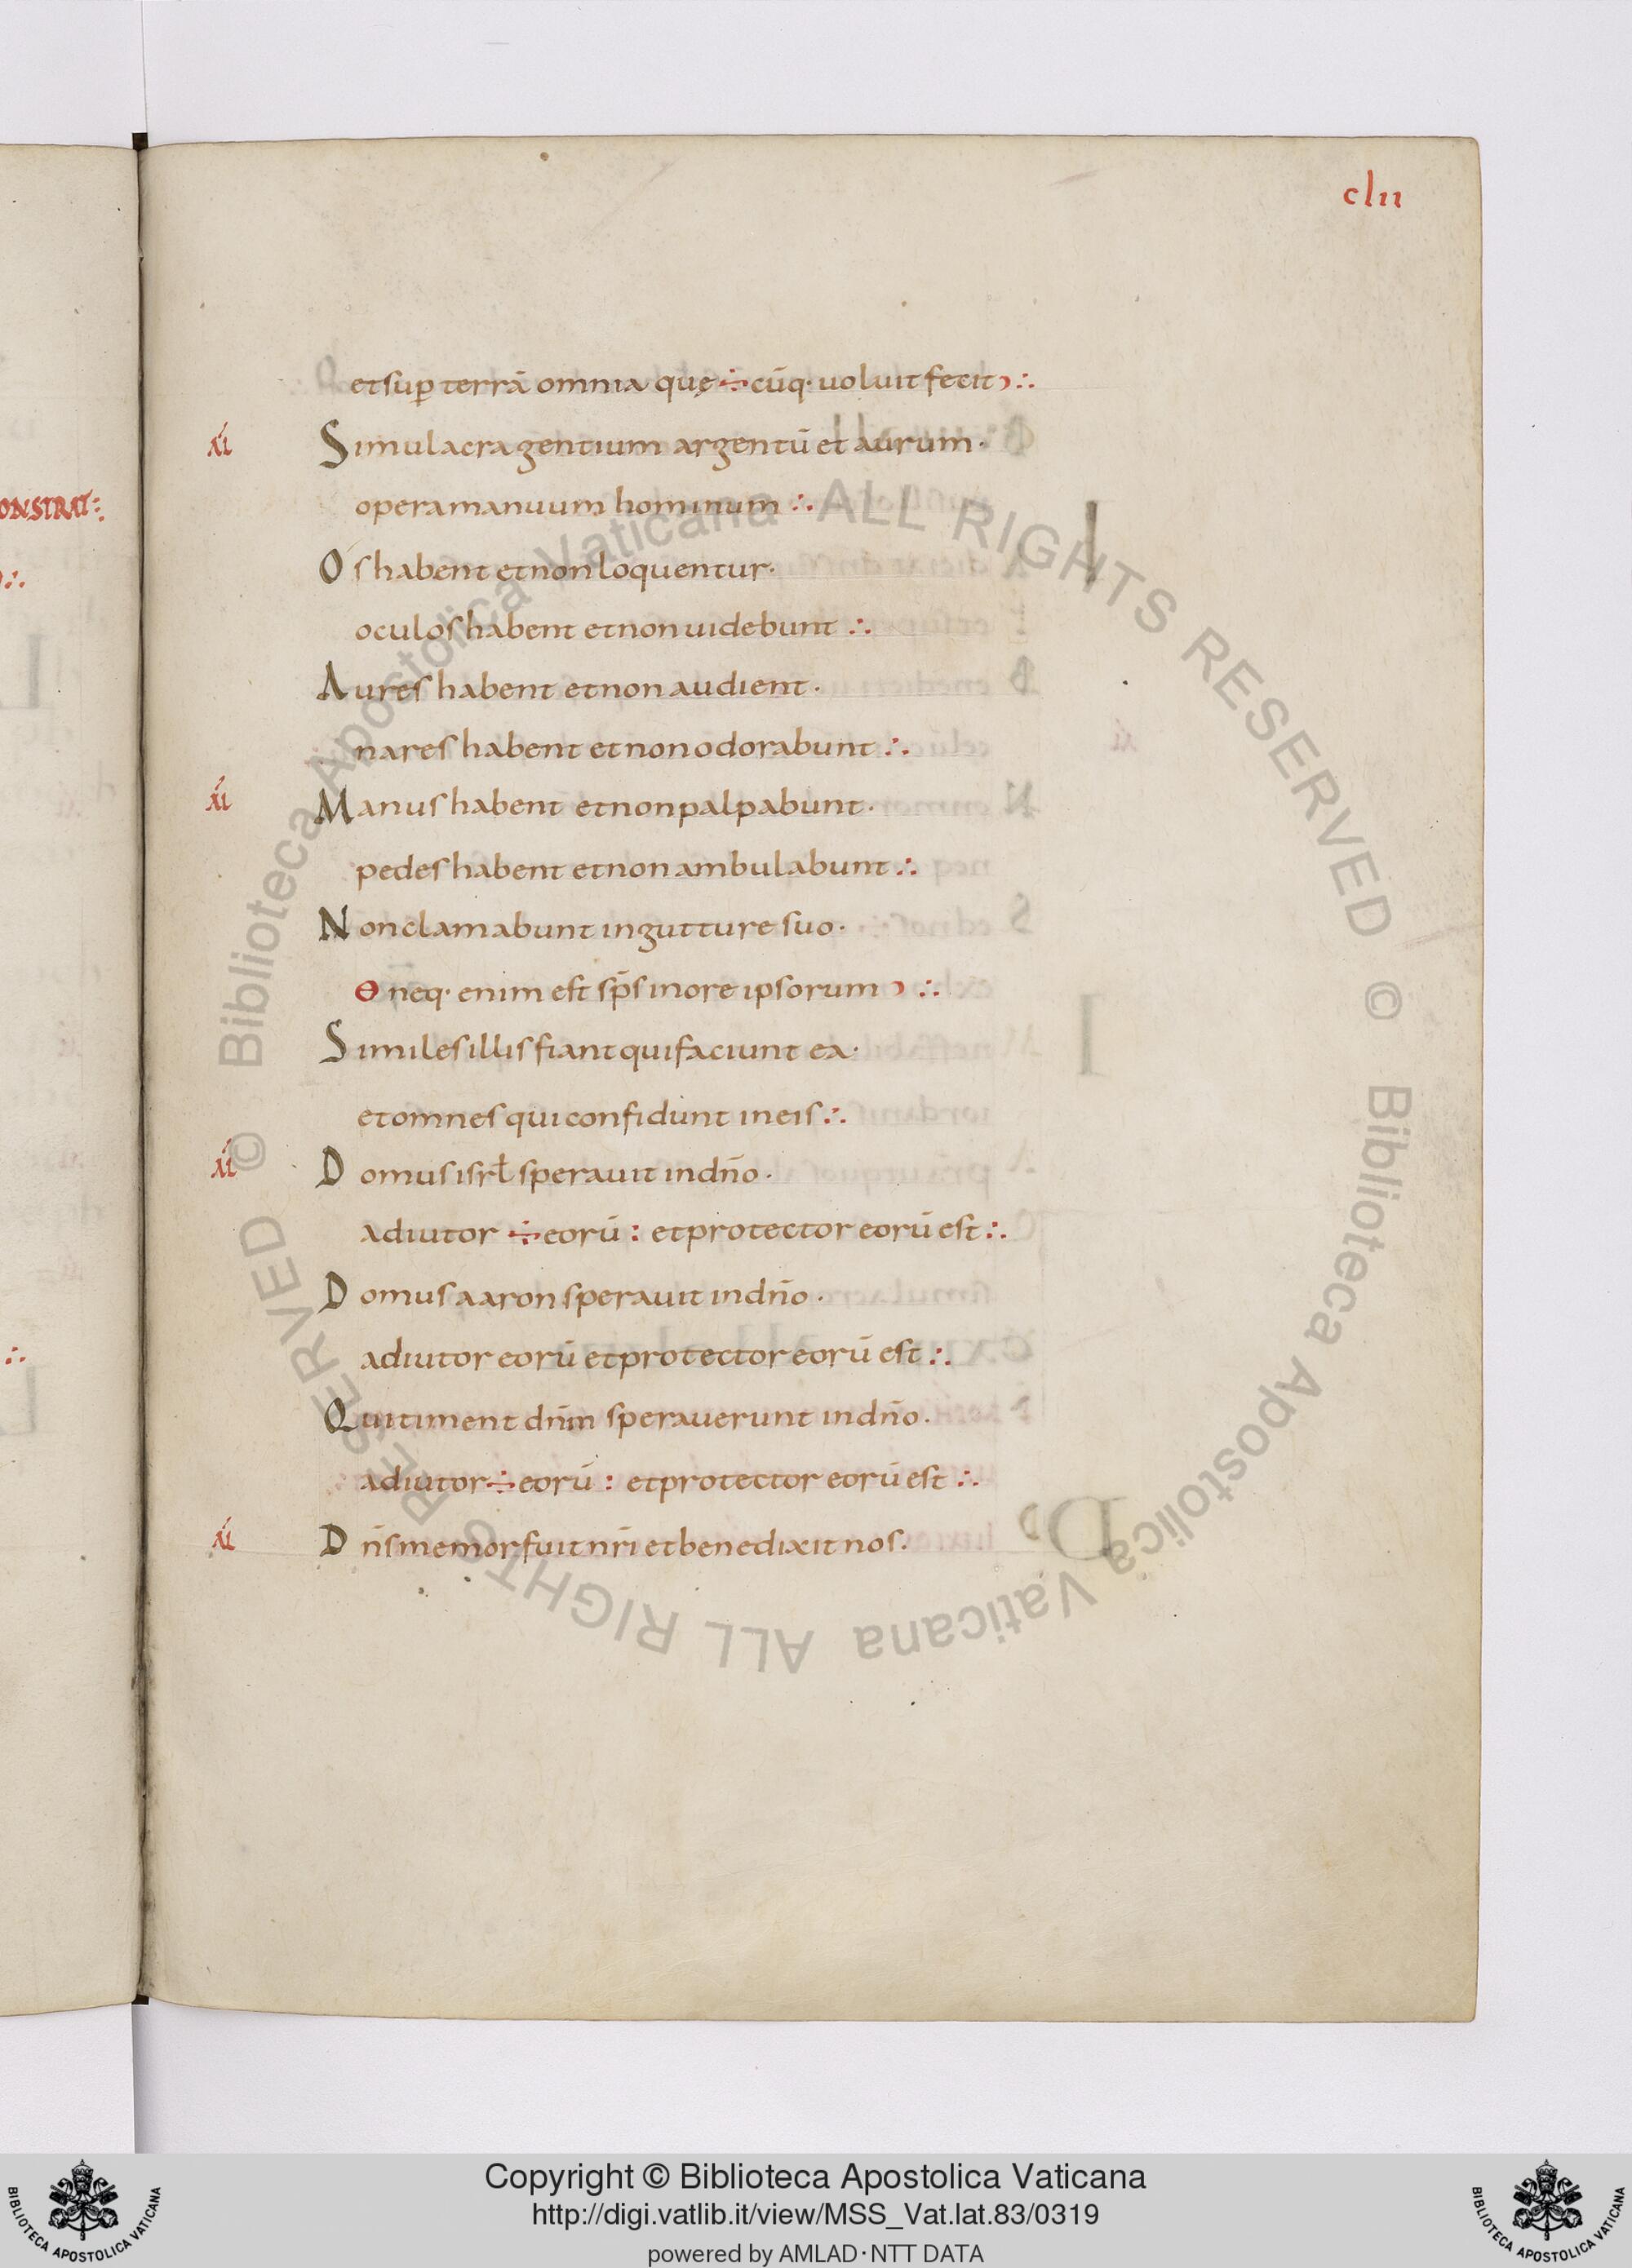 clıı
ONSTRAT:
et sup terrā omnia quę ÷ cūq· uoluit fecit ) ∴
xi Simulacra gentium argentū et aurum ·
opera manuum hominum ∴
Os habent et non loquentur·
oculos habent et non uidebunt ∴
Aures habent et non audient ·
nares habent et non odorabunt ∴
xi Manus habent et non palpabunt ·
pedes habent et non ambulabunt ∴
Non clamabunt in gutture suo ·
Θ neq· enim est sp̄s in ore ipsorum ) ∴
Similes illis fiant qui faciunt ea ·
et omnes qui confidunt in eis ∴
xi Domus isrł sperauit in dn̄o ·
adiutor ÷ eorū : et protector eorū est ∴
Domus aaron sperauit in dn̄o ·
adiutor eorū et protector eorū est ∴
Qui timent dn̄m sperauerunt in dn̄o ·
adiutor ÷ eorū : et protector eorū est ∴
xi Dn̄s memor fuit nr̄i et benedixit nos ·
© Biblioteca Apostolica Vaticana ALL RIGHTS RESERVED © Biblioteca Apostolica Vaticana ALL RIGHTS RESERVED
Copyright © Biblioteca Apostolica Vaticana
http://digi.vatlib.it/view/MSS_Vat.lat.83/0319
powered by AMLAD·NTT DATA
BIBLIOTECA APOSTOLICA VATICANA
BIBLIOTECA APOSTOLICA VATICANA